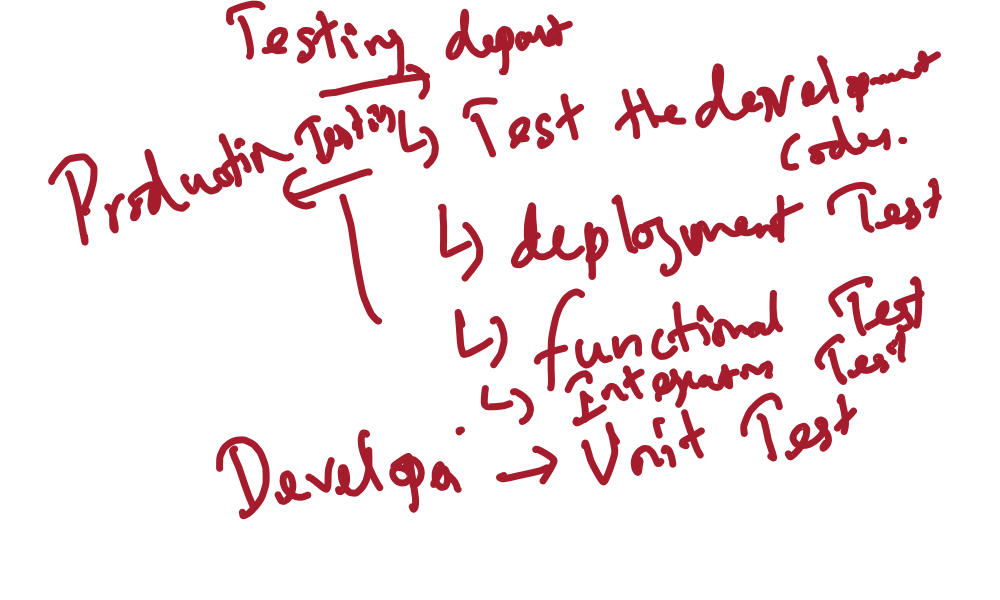 Testing depart
Production Testing
Test the development
Codes.
deployment Test
functional Test
Integration Test
Develope → Unit Test